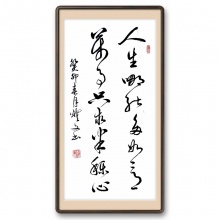 人生哪能多如意
万事只求半称心
癸卯春月
书